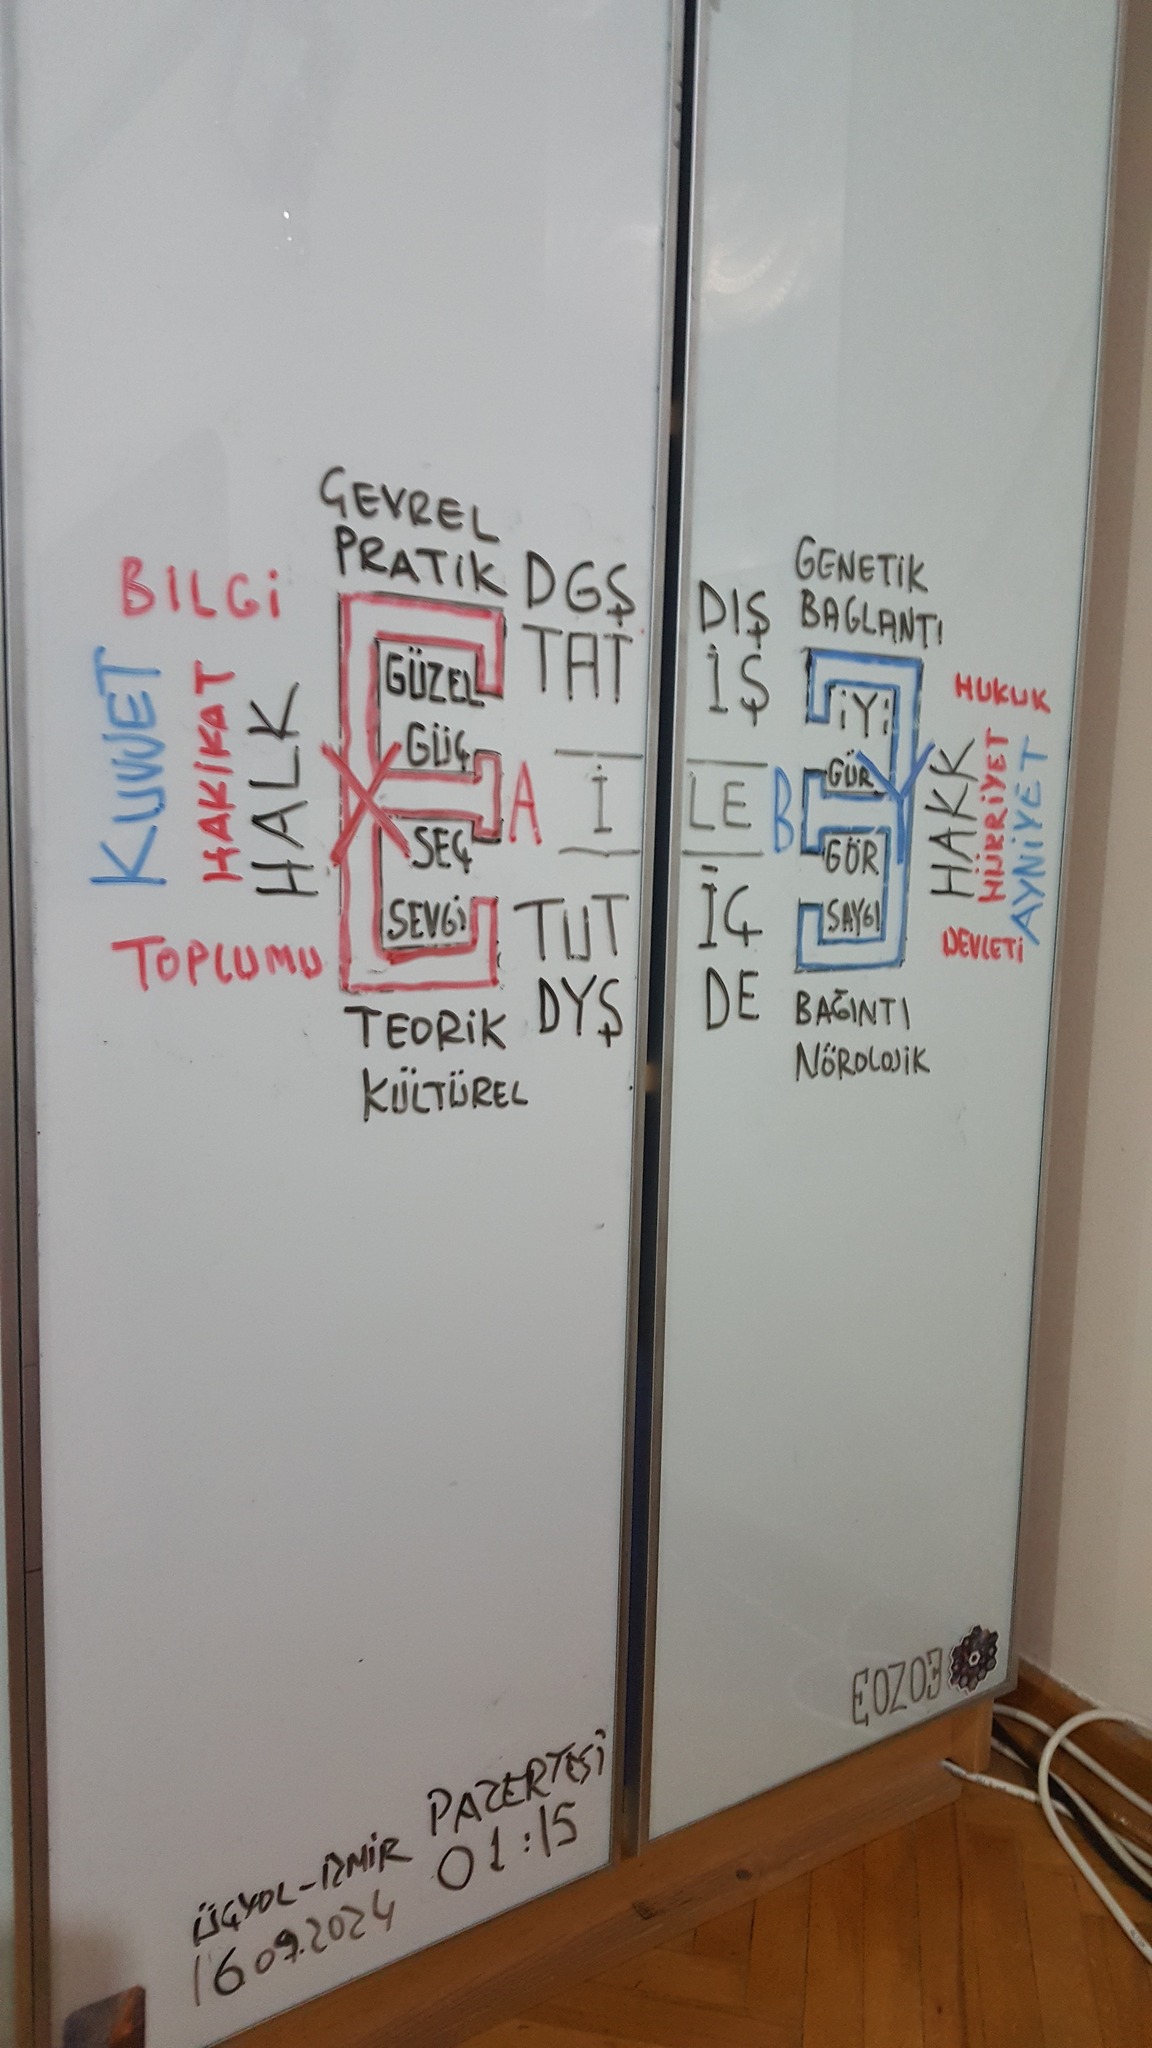 ÇEVREL
PRATİK
BILGi
KUVVET
HAKİKAT
HALK
TOPLUMU
GÜZEL
GÜÇ
X
A
SEÇ
SEVGİ
TEORİK
KÜLTÜREL
DGŞ
TAT
İ
TUT
DYŞ
DIŞ
İŞ
LE
İÇ
DE
GENETİK
BAGLANTI
İYİ
GÜR
Y
B
GÖR
SAYGI
BAĞINTI
NÖROLOJİK
HUKUK
HAKK
HÜRRİYET
AYNİYET
DEVLETİ
EOZOE
ÜÇYOL-İZMİR PAZERTESİ
16.09.2024 01:15